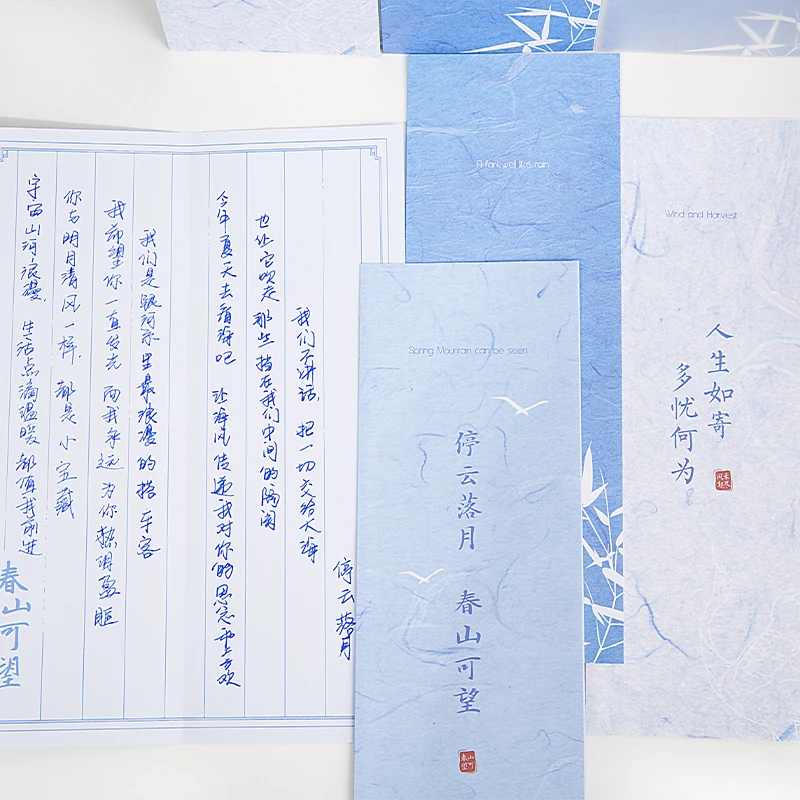 宇宙山河浪漫, 生活点滴温暖 都值我前进
你与明月清风一样 都是小宝藏
我希望你一直发光 而我永远为你热泪盈眶
我们是银河系里最浪漫的搭车客
今年夏天去看海吧 让海风传递我对你的思念和喜欢
也让它吹走 那些挡在我们中间的隔阂
我们不讲话, 把一切交给大海
停云落月
春山可望
A farewell like rain
Spring Mountain can be seen
停云落月 春山可望
春山可望
Wind and Harvest
人生如寄
多忧何为